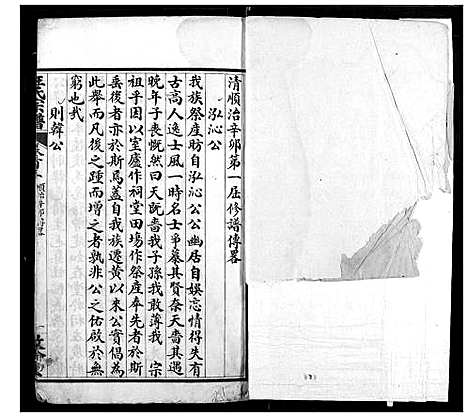 清順治辛卯第一屆修譜傳畧
泓沁公
我族祭產昉自泓沁公公幽居自娛忘情得失有
古高人逸士風一時名士爭慕其賢奈天嗇其遇
晚年子喪慨然曰天既嗇我子孫我敢薄我 宗
祖乎因以室廬作祠堂田場作祭產奉先者於斯
垂後者亦於斯焉蓋自我族遷黄以來公實倡為
此舉而凡後之踵而增之者孰非公之佑啟於無
窮也哉
則韓公
氏宗譜
卷首
順治辛卯傳畧
一